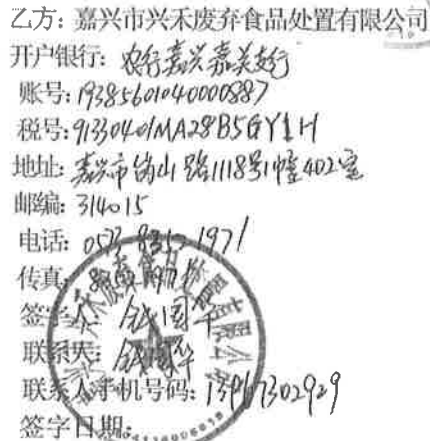 乙方: 嘉兴市兴禾废弃食品处置有限公司
开户银行: 农行嘉兴嘉关支行
账号: 19385601040000887
税号: 91330401MA28B5GY1H
地址: 嘉兴市 路1118号1幢402室
邮编: 314015
电话: 0573 8357 1971
传真:
签字:
联系人:
联系人手机号码: 13967302929
签字日期: